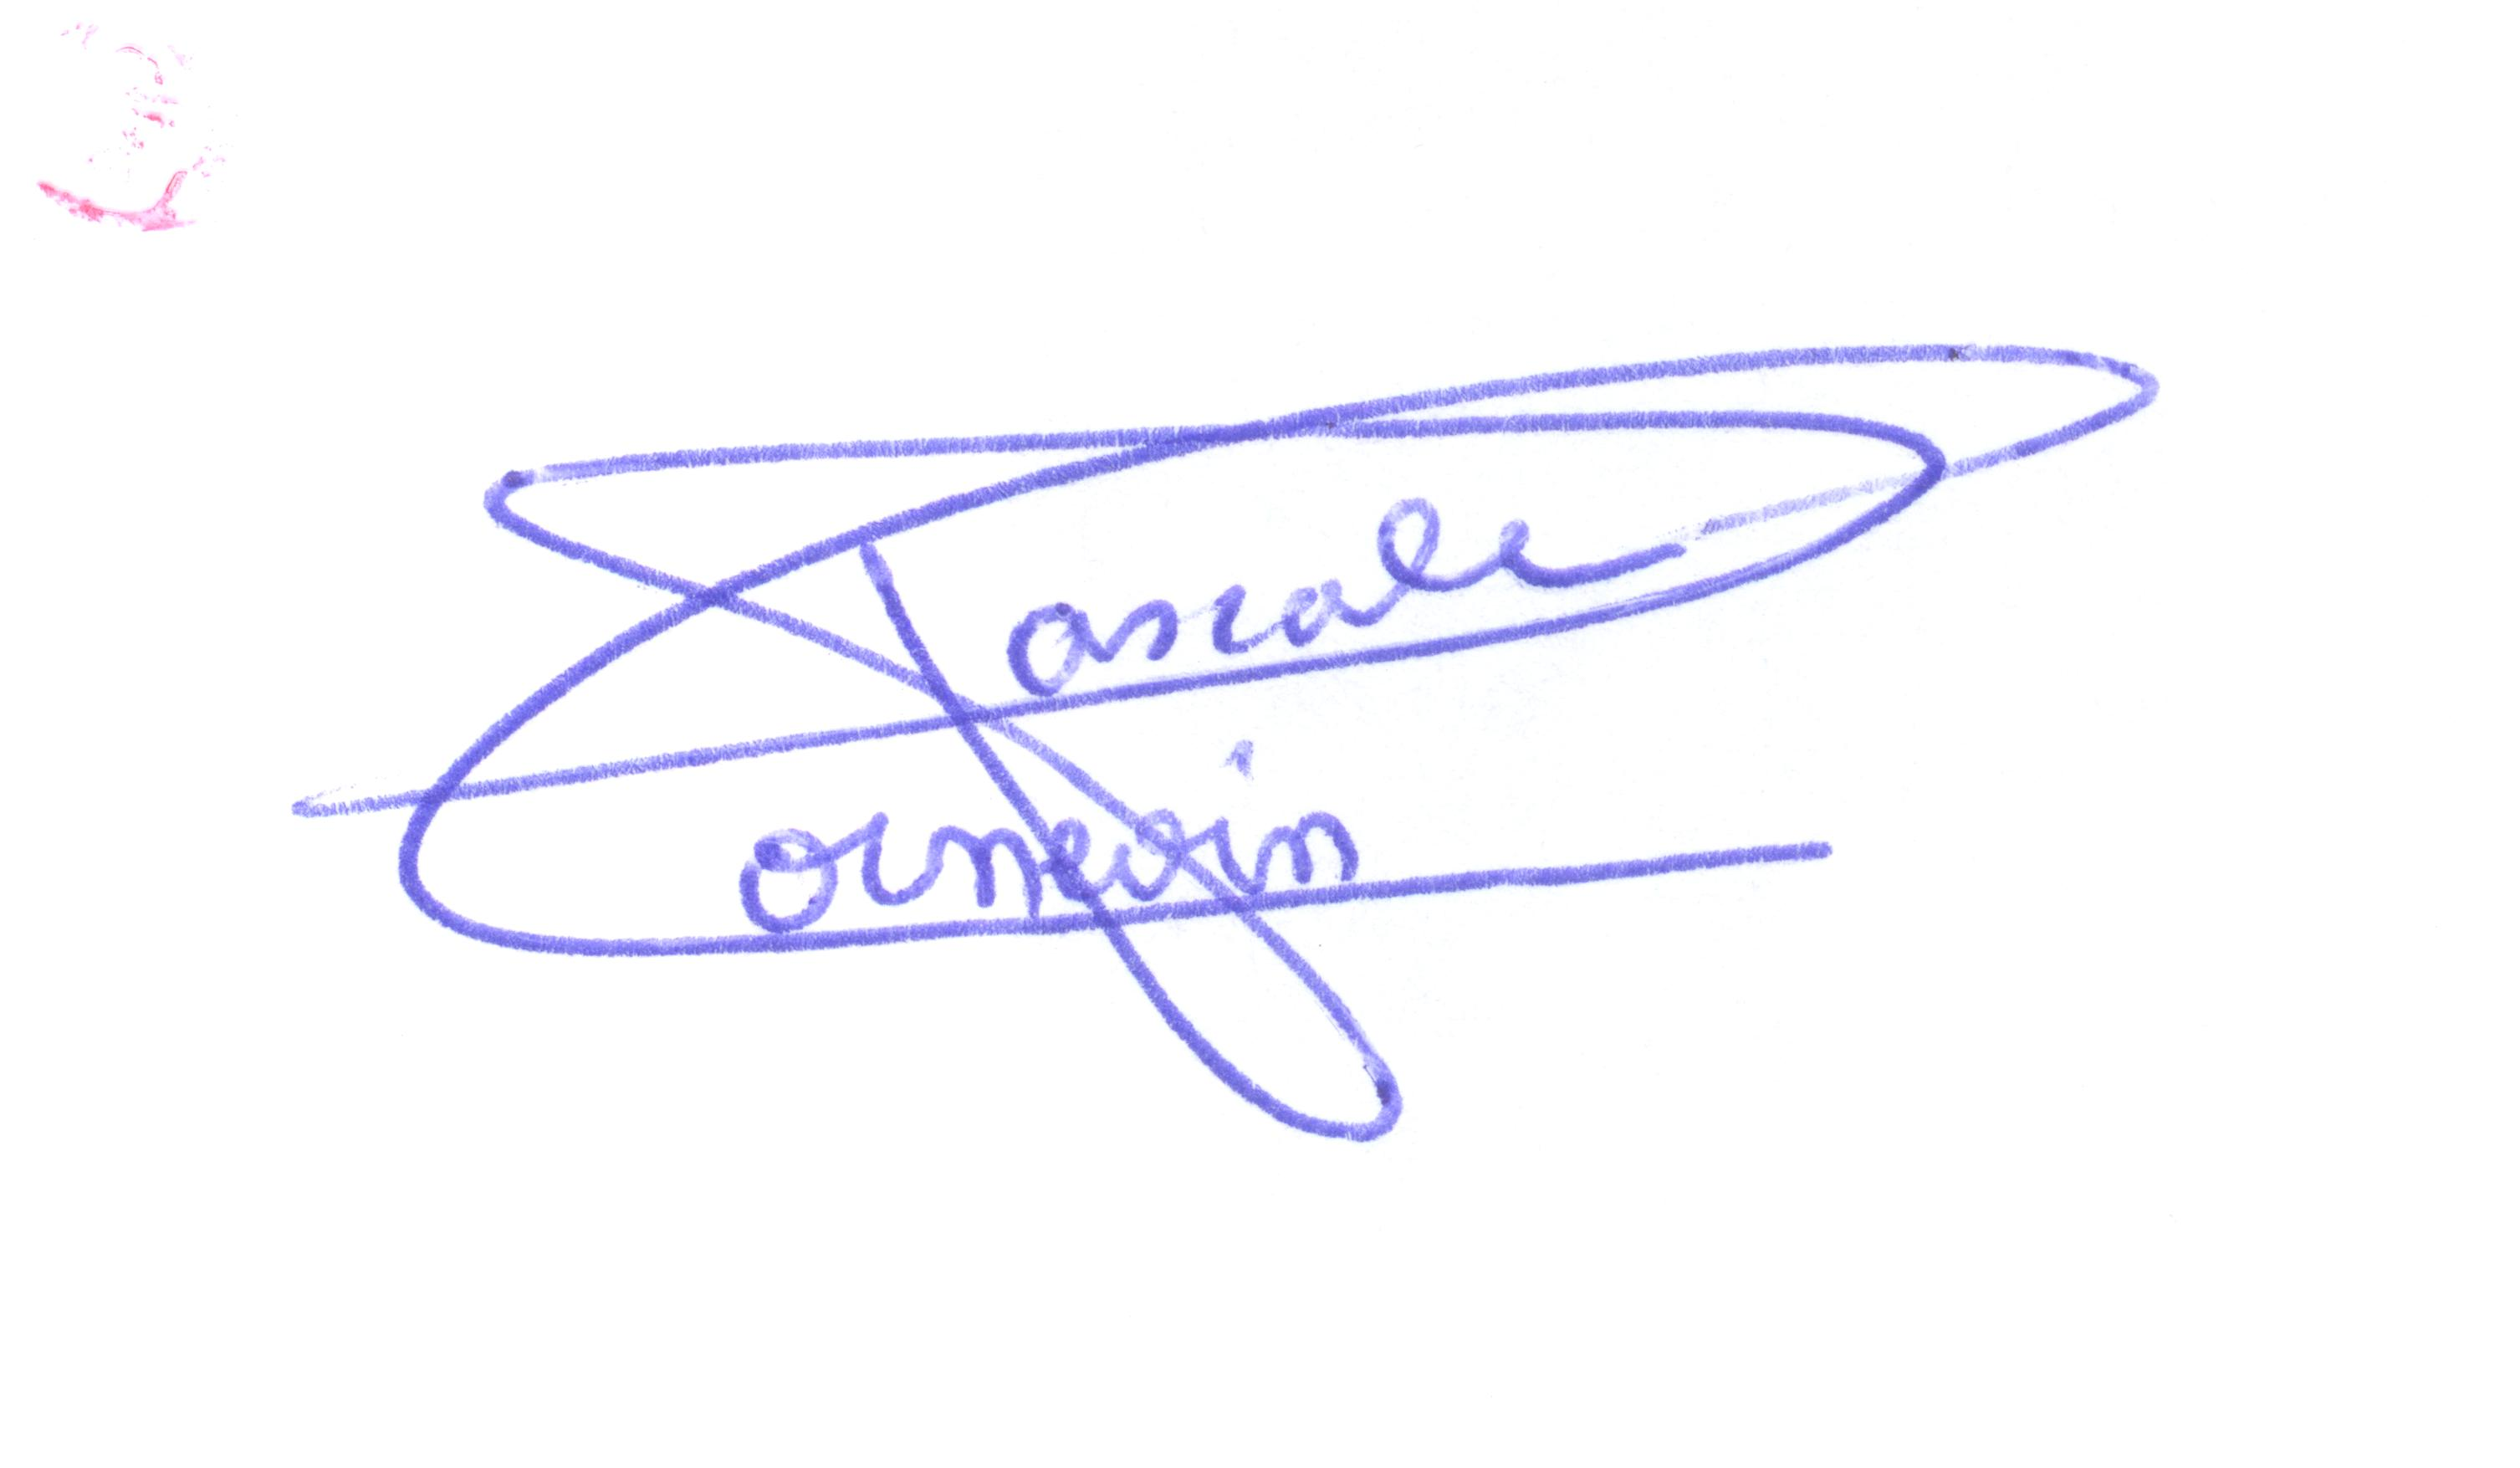 Pascale
Cornevin